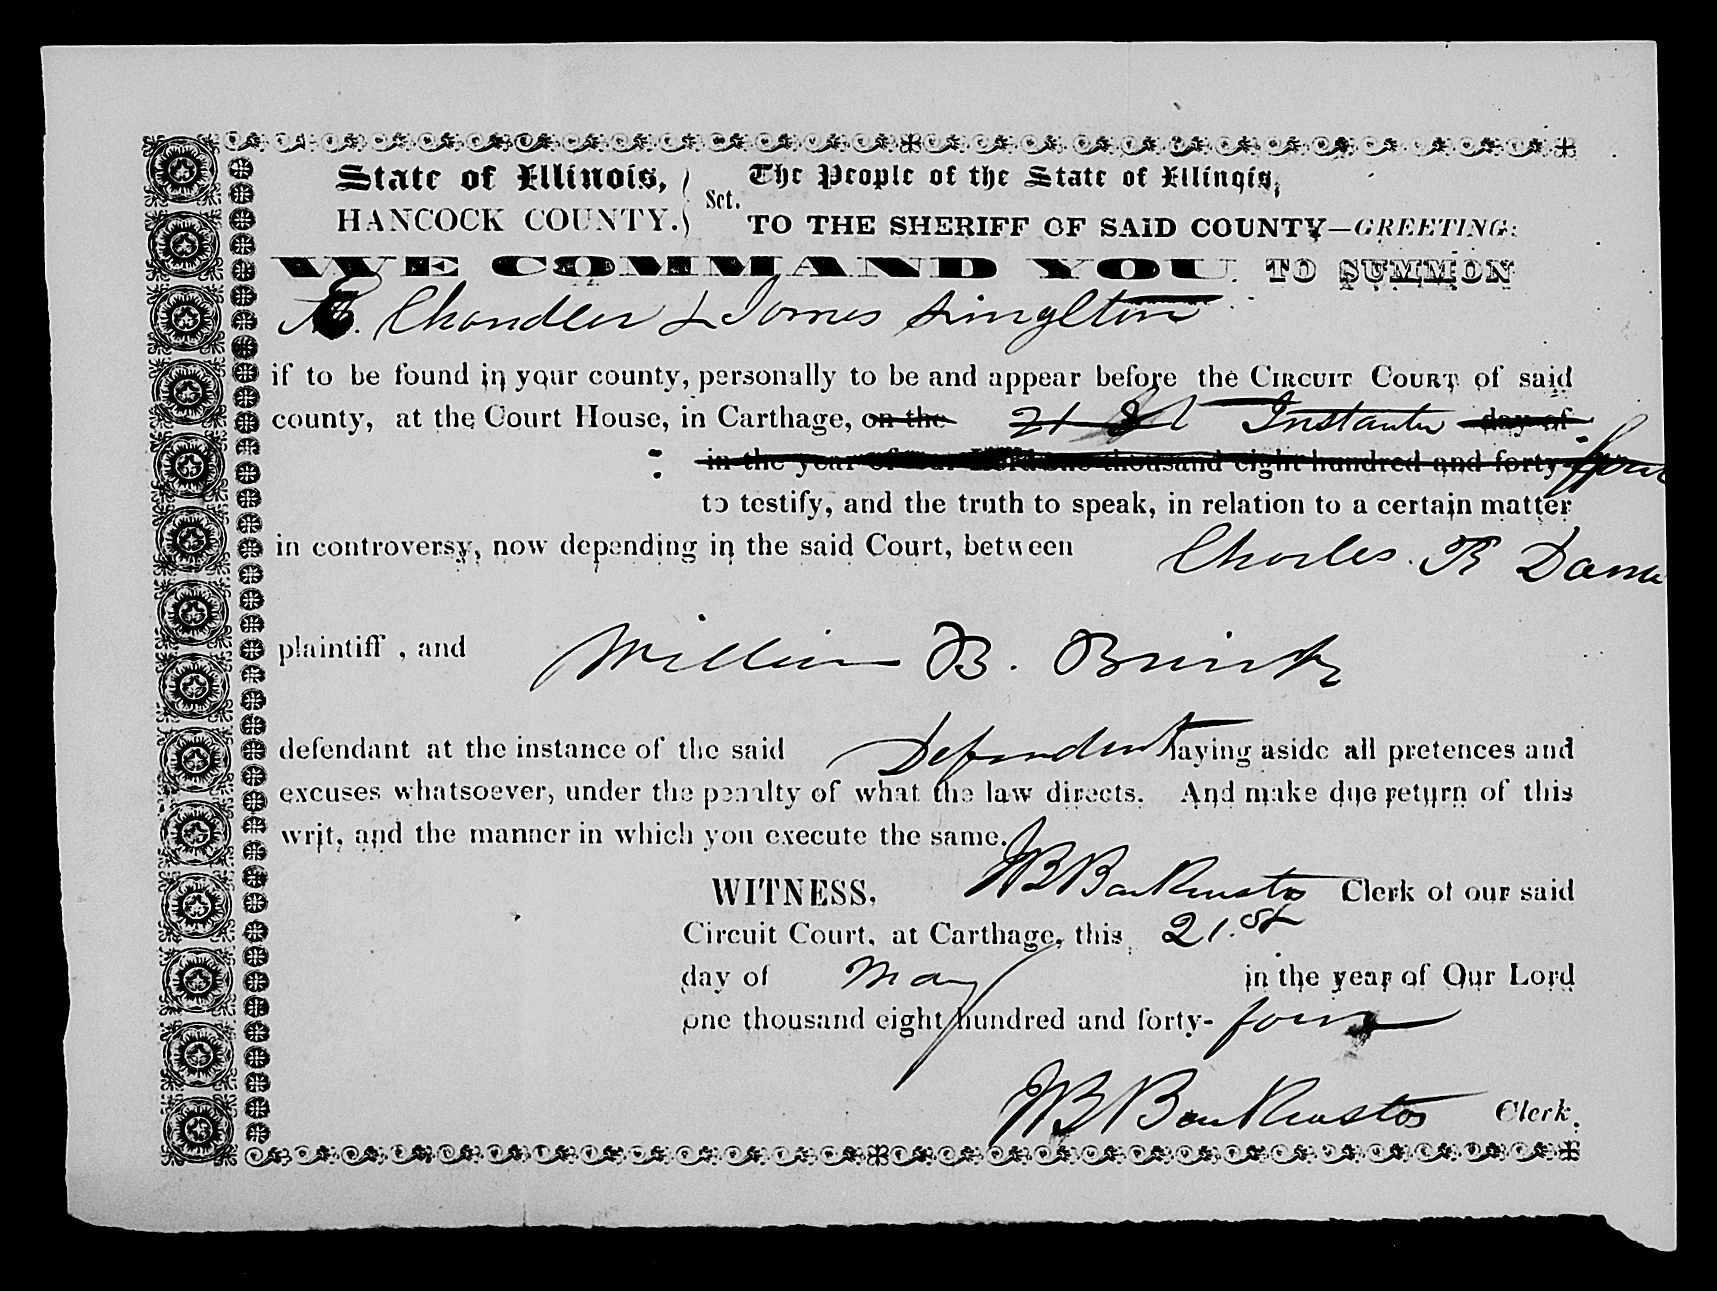 State of Illinois, } Sct. The People of the State of Illinois,
HANCOCK COUNTY. TO THE SHERIFF OF SAID COUNTY—GREETING:
WE COMMAND YOU TO SUMMON
Chandler & James Singleton
if to be found in your county, personally to be and appear before the CIRCUIT COURT of said
county, at the Court House, in Carthage, on the 21 Instanter day of
in the year of our Lord one thousand eight hundred and forty-four
to testify, and the truth to speak, in relation to a certain matter
in controversy, now depending in the said Court, between Charles R Dana
plaintiff , and William B. Brink
defendant at the instance of the said Defendant laying aside all pretences and
excuses whatsoever, under the penalty of what the law directs. And make due return of this
writ, and the manner in which you execute the same.
WITNESS, JB Backenstos Clerk of our said
Circuit Court, at Carthage, this 21.st
day of May in the year of Our Lord
one thousand eight hundred and forty-four
JB Backenstos Clerk.